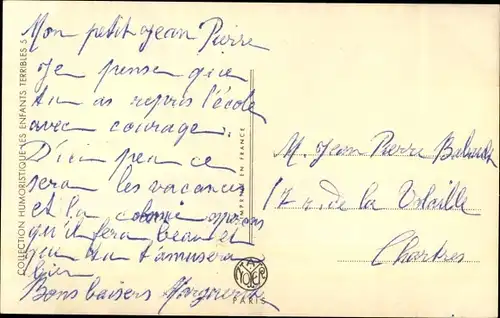 Mon petit Jean Pierre
Je pense que
tu as repris l'école
avec courage.
D'ici peu ce
sera les vacances
et la colonie espérons
qu'il fera beau et
que tu t'amusera
bien
Bons baisers Marguerite
COLLECTION HUMORISTIQUE LES ENFANTS TERRIBLES 5
IMPRIMÉ EN FRANCE
PARIS
M. Jean Pierre
17 r. de la
Chartres